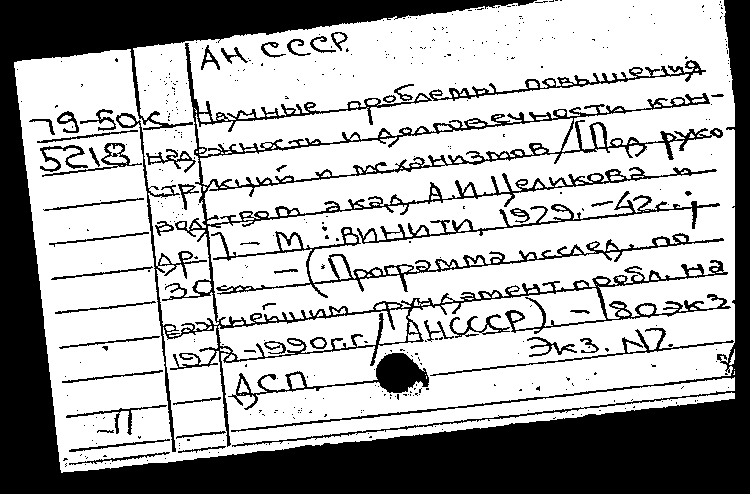 АН СССР.
79-50к Научные проблемы повышения
5218 надежности и долговечности кон-
струкций и механизмов /[Под руко-
водством акад. А.И.Целикова и
др.]. - М. : ВИНИТИ, 1979. - 42с.;
30см. - (Программа исслед. по
важнейшим фундамент. пробл. на
1978-1990г.г. / АНСССР). - 180экз.
Экз. N7.
ДСП.
-11